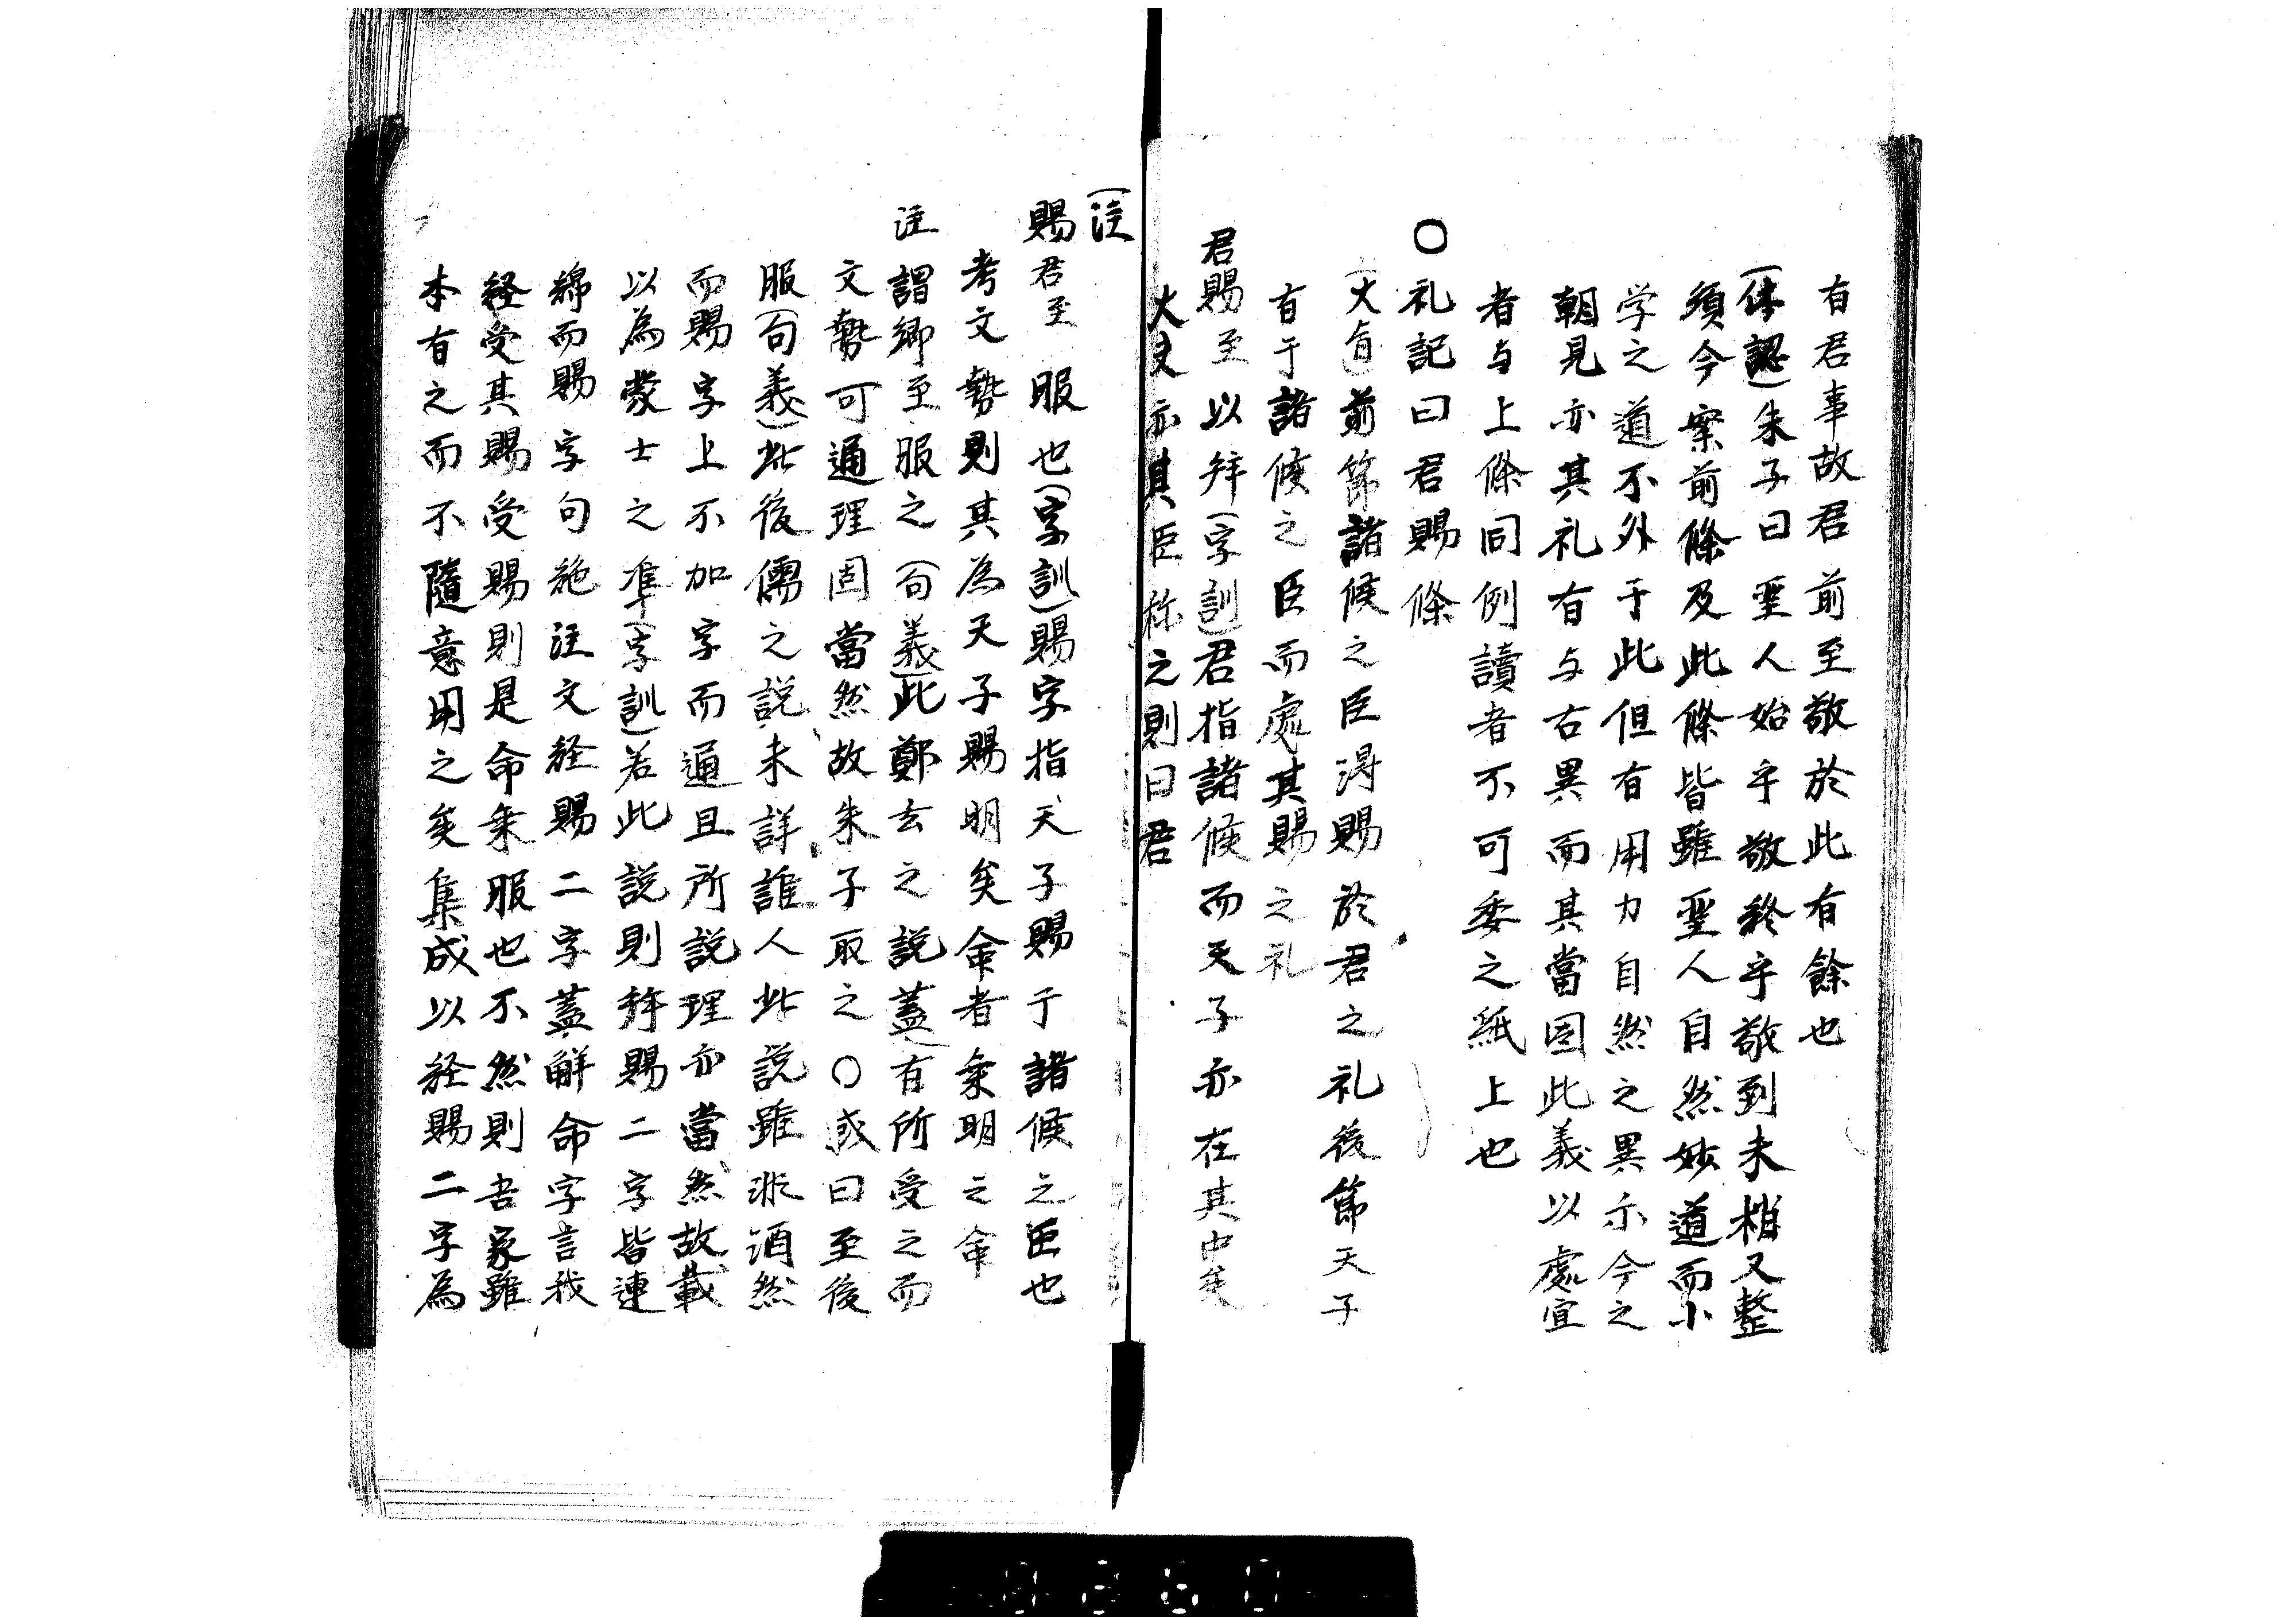 有君事故君前至敬於此有餘也
(体認)朱子曰聖人始乎敬終乎敬到未梢又整
須今案前條及此條皆雖聖人自然妙道而小
学之道不外于此但有用力自然之異示今之
朝見亦其礼有与右異而其當因此義以處宜
者与上條同例讀者不可委之紙上也
〇礼記曰君賜條
(大旨)前節諸候之臣得賜於君之礼後節天子
有于諸候之臣而處其賜之礼
君賜至以拜(字訓)君指諸候而天子亦在其中矣
大夫亦其臣称之則曰君
(注
賜君至服也(字訓)賜字指天子賜于諸候之臣也
考文勢則其為天子賜明矣命者乗明之命
注謂卿至服之(句義)此鄭玄之説蓋有所受之而
文勢可通理固當然故朱子取之〇或曰至後
服(句義)此後儒之説未詳誰人此説雖非酒然
而賜字上不加字而通且所説理亦當然故載
以為蒙士之準(字訓)若此説則拜賜二字皆連
綿而賜字句絶注文経賜二字蓋解命字言我
経受其賜受賜則是命乗服也不然則吾家雖
本有之而不隨意用之矣集成以経賜二字為